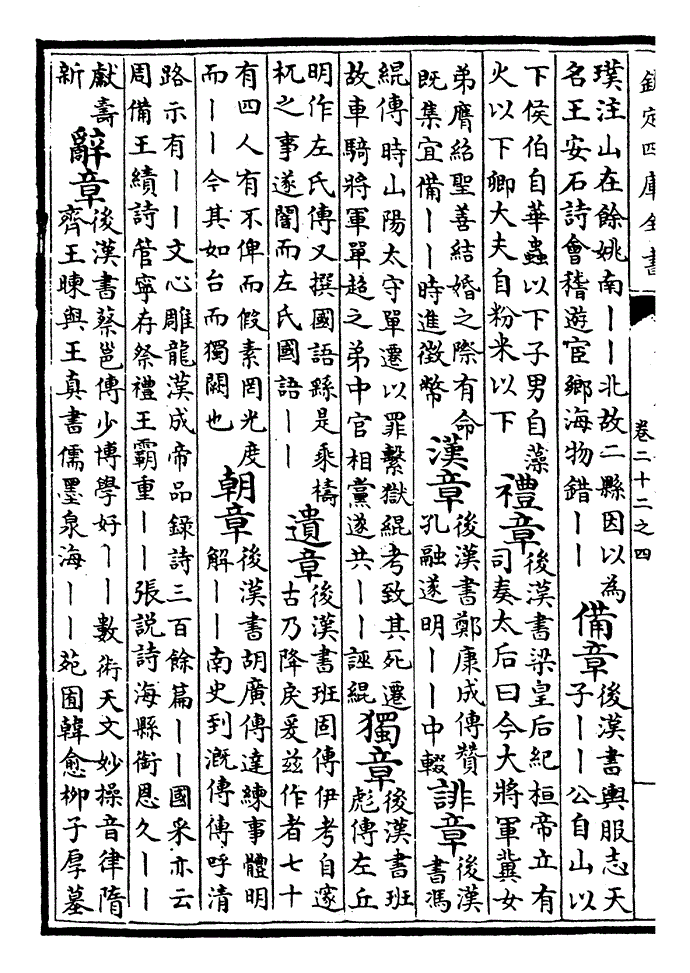 欽定四庫全書
卷二十二之四
璞注山在餘姚南丨丨北故二縣因以為
名王安石詩會稽遊宦鄉海物錯丨丨
備章
後漢書輿服志天
子丨丨公自山以
下侯伯自華蟲以下子男自藻
火以下卿大夫自粉米以下
禮章
後漢書梁皇后紀桓帝立有
司奏太后曰今大將軍冀女
弟膺紹聖善結婚之際有命
既集宜備丨丨時進徵幣
漢章
後漢書鄭康成傳贊
孔融遂明丨丨中輟
誹章
後漢
書馮
緄傳時山陽太守單遷以罪繫獄緄考致其死遷
故車騎將軍單超之弟中官相黨遂共丨丨誣緄
獨章
後漢書班
彪傳左丘
明作左氏傳又撰國語繇是乘檮
杌之事遂闇而左氏國語丨丨
遺章
後漢書班固傳伊考自邃
古乃降戾爰兹作者七十
有四人有不俾而假素罔光度
而丨丨今其如台而獨闕也
朝章
後漢書胡廣傳達練事體明
解丨丨南史到溉傳傳呼清
路示有丨丨文心雕龍漢成帝品錄詩三百餘篇丨丨國采亦云
周備王績詩管寧存祭禮王霸重丨丨張説詩海縣銜恩久丨丨
獻壽
新
辭章
後漢書蔡邕傳少博學好丨丨數術天文妙操音律隋
齊王暕與王真書儒墨泉海丨丨苑囿韓愈柳子厚墓